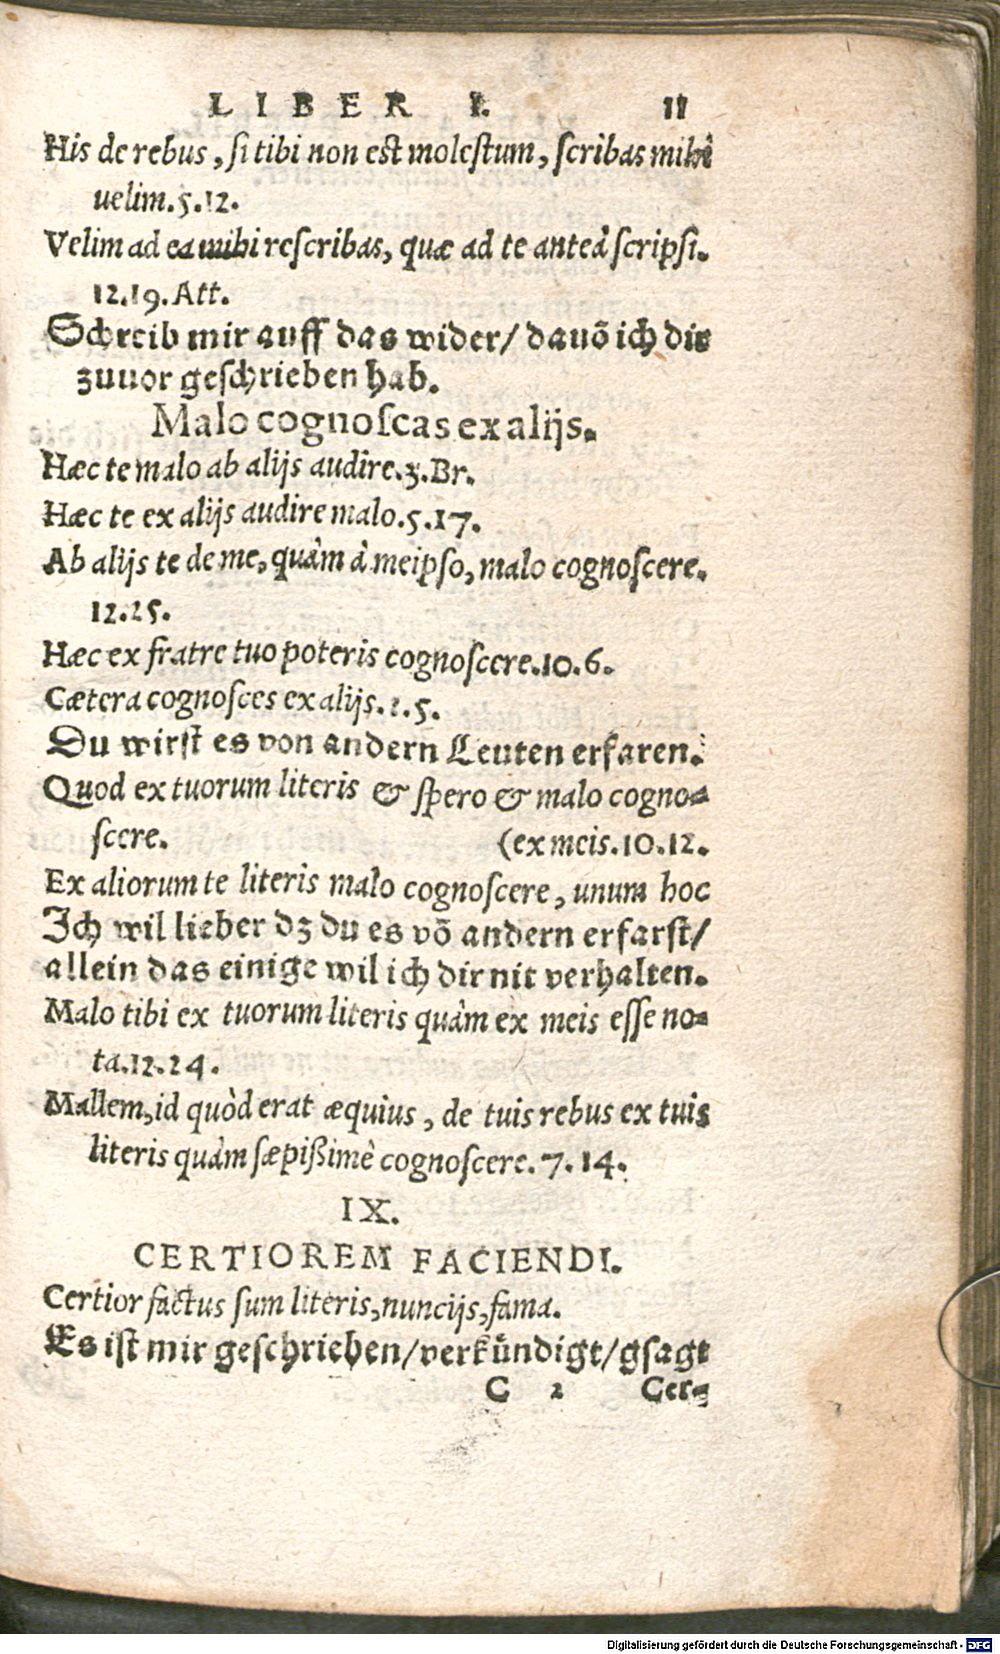 LIBER I. 11
His de rebus, si tibi non est molestum, scribas mihi
uelim. 5. 12.
Velim ad ea mihi rescribas, quæ ad te anteà scripsi.
12. 19. Att.
Schreib mir auff das wider/ dauõ ich dir
zuuor geschrieben hab.
Malo cognoscas ex alijs.
Hæc te malo ab alijs audire. 3. Br.
Hæc te ex alijs audire malo. 5. 17.
Ab alijs te de me, quàm à meipso, malo cognoscere.
12. 25.
Hæc ex fratre tuo poteris cognoscere. 10. 6.
Cætera cognosces ex alijs. 2. 5.
Du wirst es von andern Leuten erfaren.
Quod ex tuorum literis & spero & malo cogno-
scere. (ex meis. 10. 12.
Ex aliorum te literis malo cognoscere, unum hoc
Ich wil lieber dz du es võ andern erfarst/
allein das einige wil ich dir nit verhalten.
Malo tibi ex tuorum literis quàm ex meis esse no-
ta. 12. 24.
Mallem, id quòd erat æquius, de tuis rebus ex tuis
literis quàm sæpißimè cognoscere. 7. 14.
IX.
CERTIOREM FACIENDI.
Certior factus sum literis, nuncijs, fama.
Es ist mir geschrieben/ verkündigt/ gsagt
C 2 Cer-
Digitalisierung gefördert durch die Deutsche Forschungsgemeinschaft - DFG